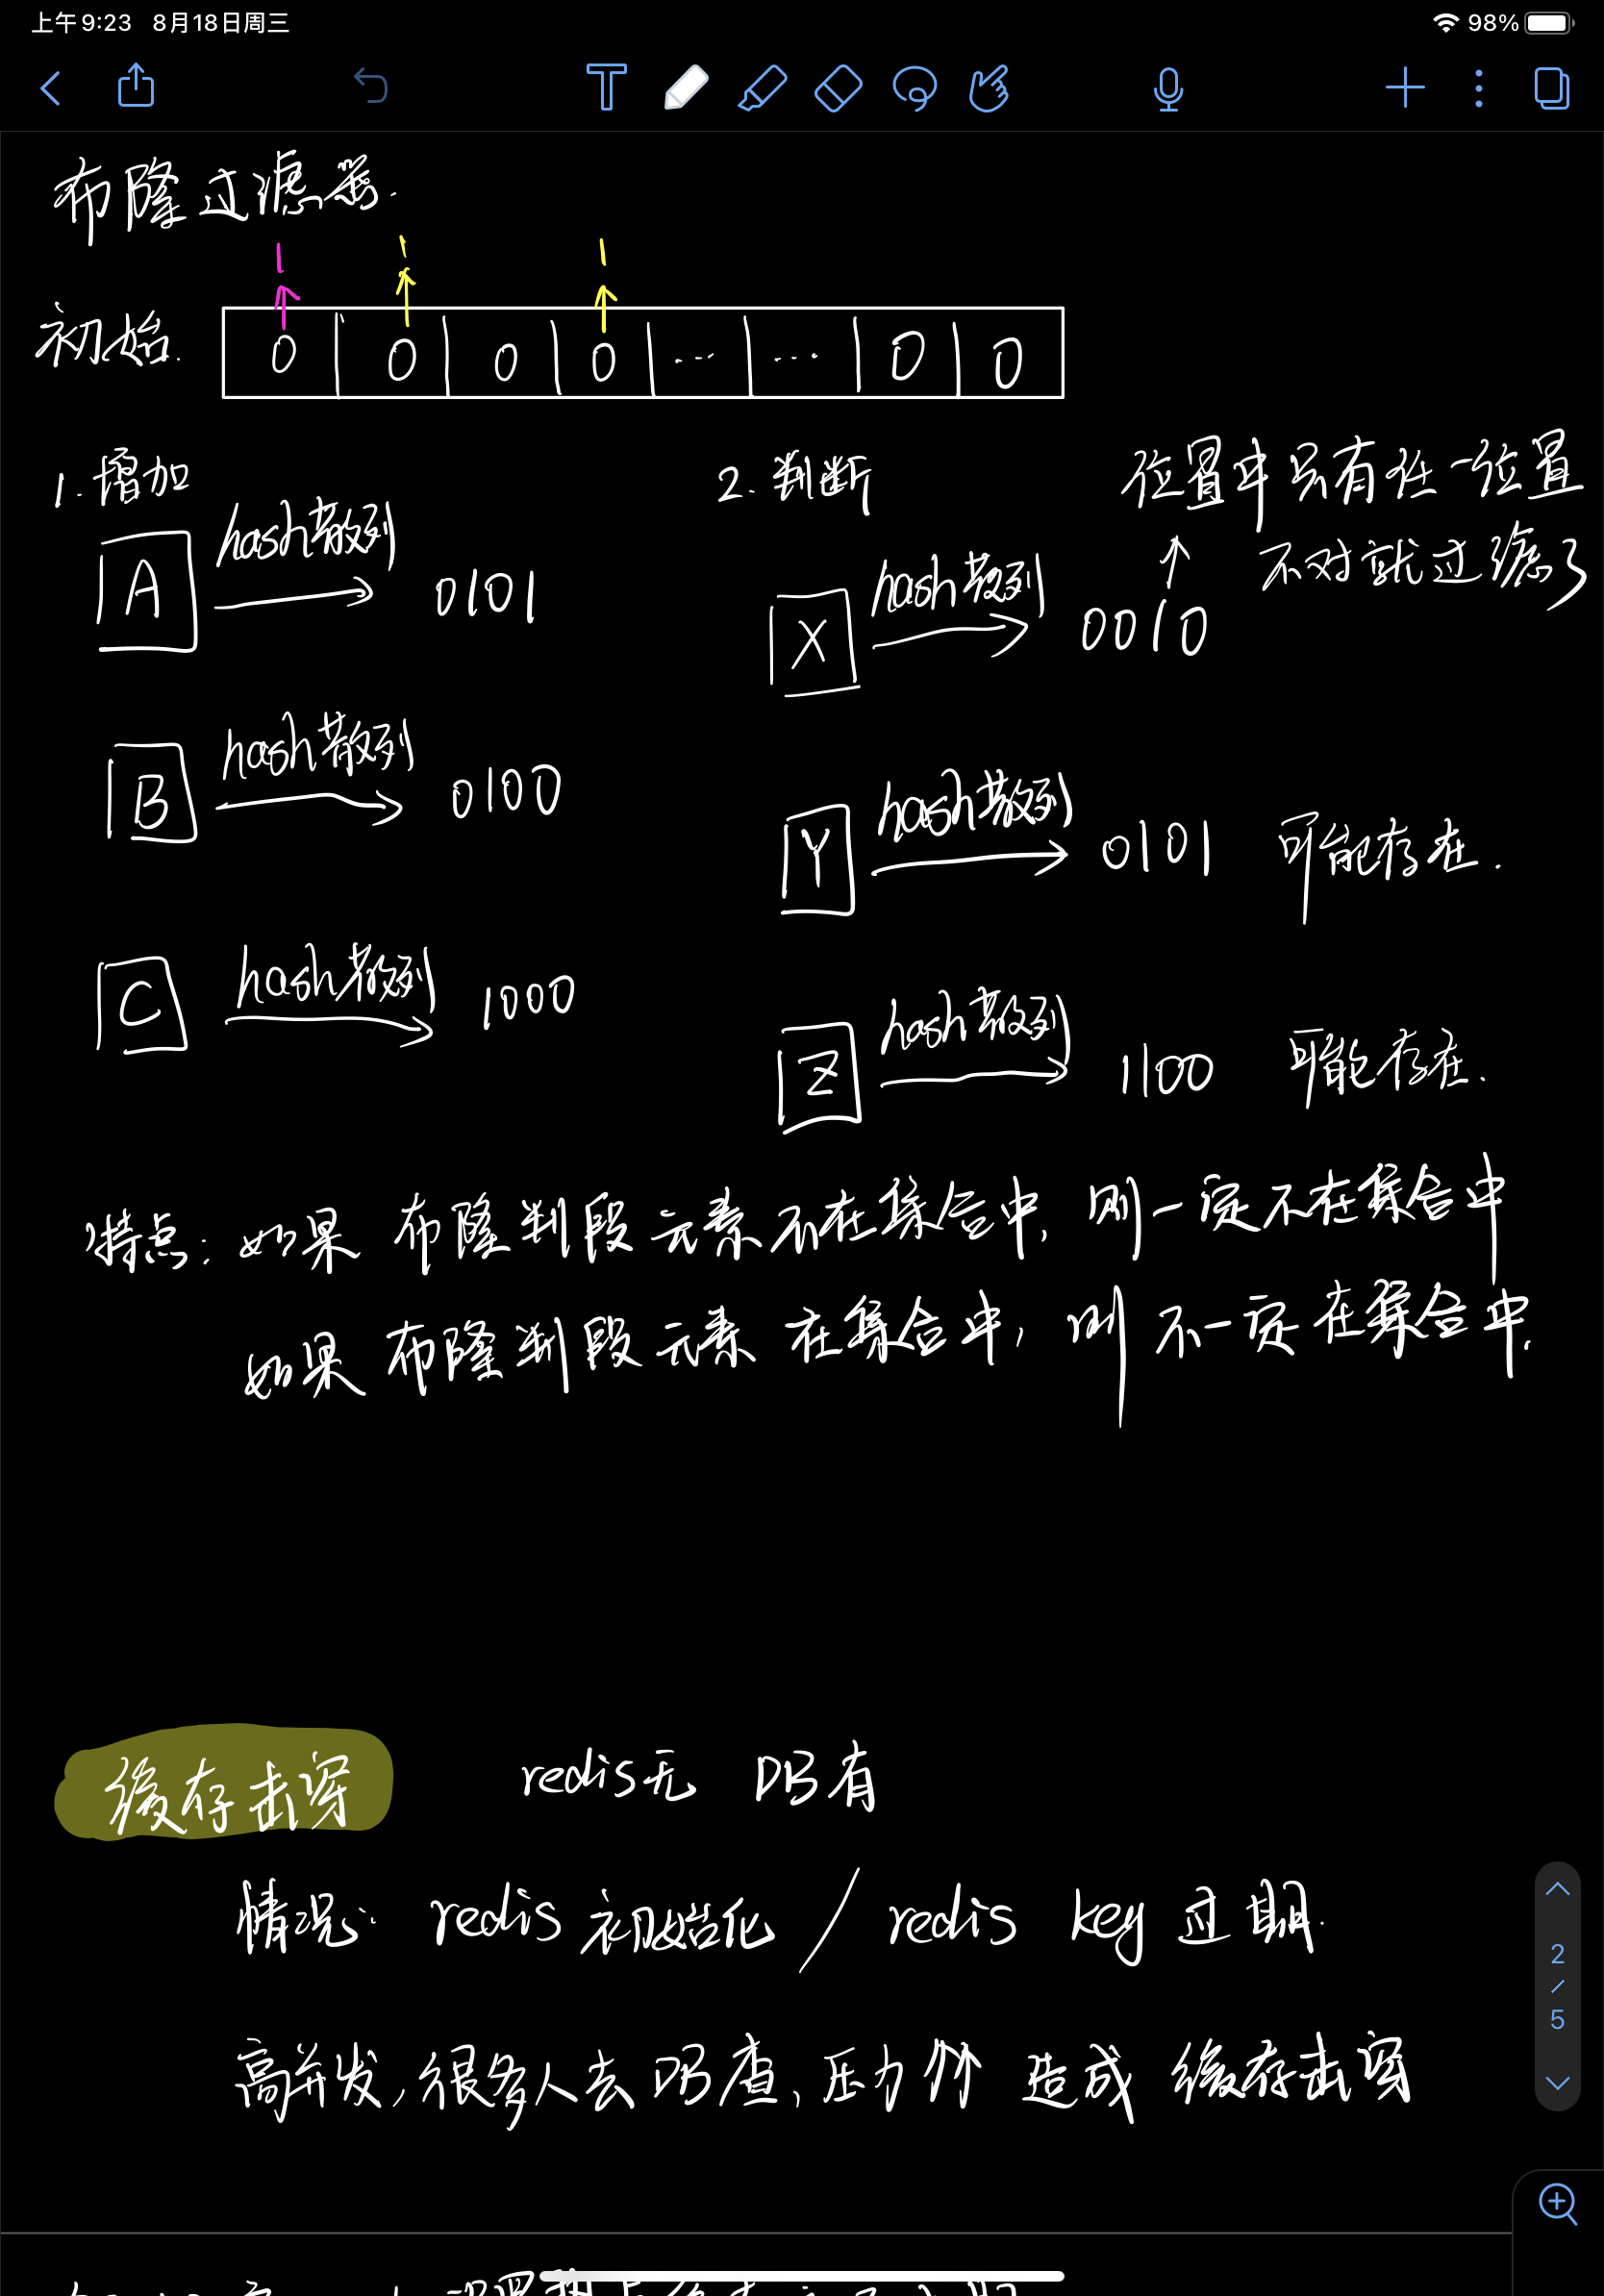 上午9:23 8月18日周三
98%
布隆过滤器.
1 1 1
初始. 0 0 0 0 ... ... 0 0
1.增加
A hash散列 0101
B hash散列 0100
C hash散列 1000
2.判断
位置中只有任一位置
不对就过滤了
X hash散列 0010
Y hash散列 0101 可能存在.
Z hash散列 1100 可能存在.
特点: 如果 布隆判段 元素不在集合中, 则一定不在集合中
如果 布隆判段 元素 在集合中, 则 不一定 在集合中.
缓存击穿 redis无 DB有
情况: redis 初始化 / redis key 过期.
高并发, 很多人去 DB查, 压力 ↑↑ 造成 缓存击穿
2
/
5